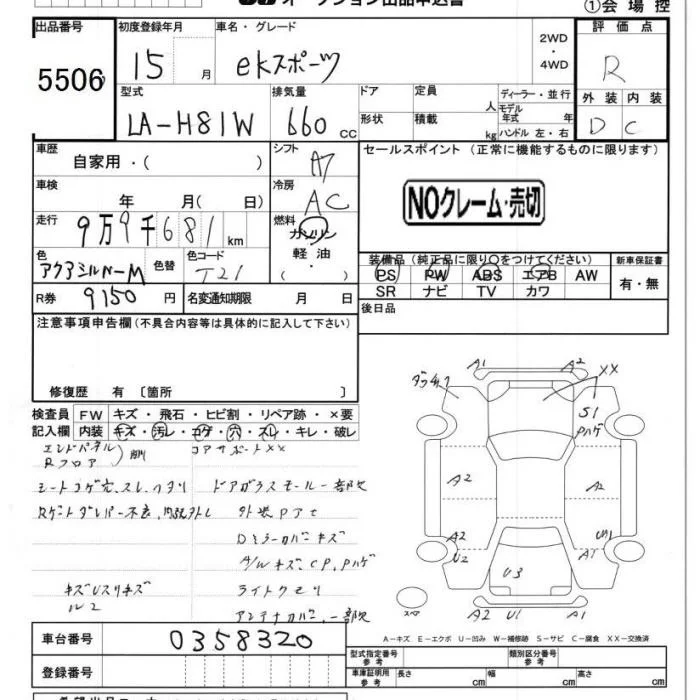 オークション出品申込書
①会場控
出品番号 初度登録年月 車名・グレード 評価点
5506 15 月 ekスポーツ 2WD・4WD R
型式 排気量 ドア 定員 人 ディーラー・並行
モデル年式 年
外装 内装
LA-H81W 660 cc 形状 積載 kg ハンドル 左・右 D C
車歴 シフト セールスポイント(正常に機能するものに限ります)
自家用・( ) A7
車検 冷房 NOクレーム・売切
年 月( 日) AC
走行 燃料
9万9千681 km ガソリン
軽油・( )
色 色替 色コード 装備品(純正品に限り○をつけてください) 新車保証書
アクアシルバーM T21 PS PW ABS エアB AW 有・無
SR ナビ TV カワ
R券 9150 円 名変通知期限 月 日 後日品
注意事項申告欄(不具合内容等は具体的に記入して下さい)
修復歴 有 〔箇所 〕
検査員記入欄 FW キズ・飛石・ヒビ割・リペア跡・×要
内装 キズ・汚レ・コゲ・穴・スレ・キレ・破レ
エンドパネル コアサポートXX
Rフロア
シートコゲ穴、スレ、ヘタリ ドアガラスモール一部欠
Rゲートダンパー不良、
Dミラーカバーキズ
A/Wキズ、CP、Pハゲ
ライトクモリ
アンテナカバー、一部欠
A1 A2 XX
S1
Pハゲ
A2 A2
A2
U2
U3
A2 U1 A1
A-キズ E-エクボ U-凹み W-補修跡 S-サビ C-腐食 XX-交換済
車台番号 0358320 型式指定番号 参考 類別区分番号 参考
登録番号 車庫証明用 参考 長さ cm 幅 cm 高さ cm